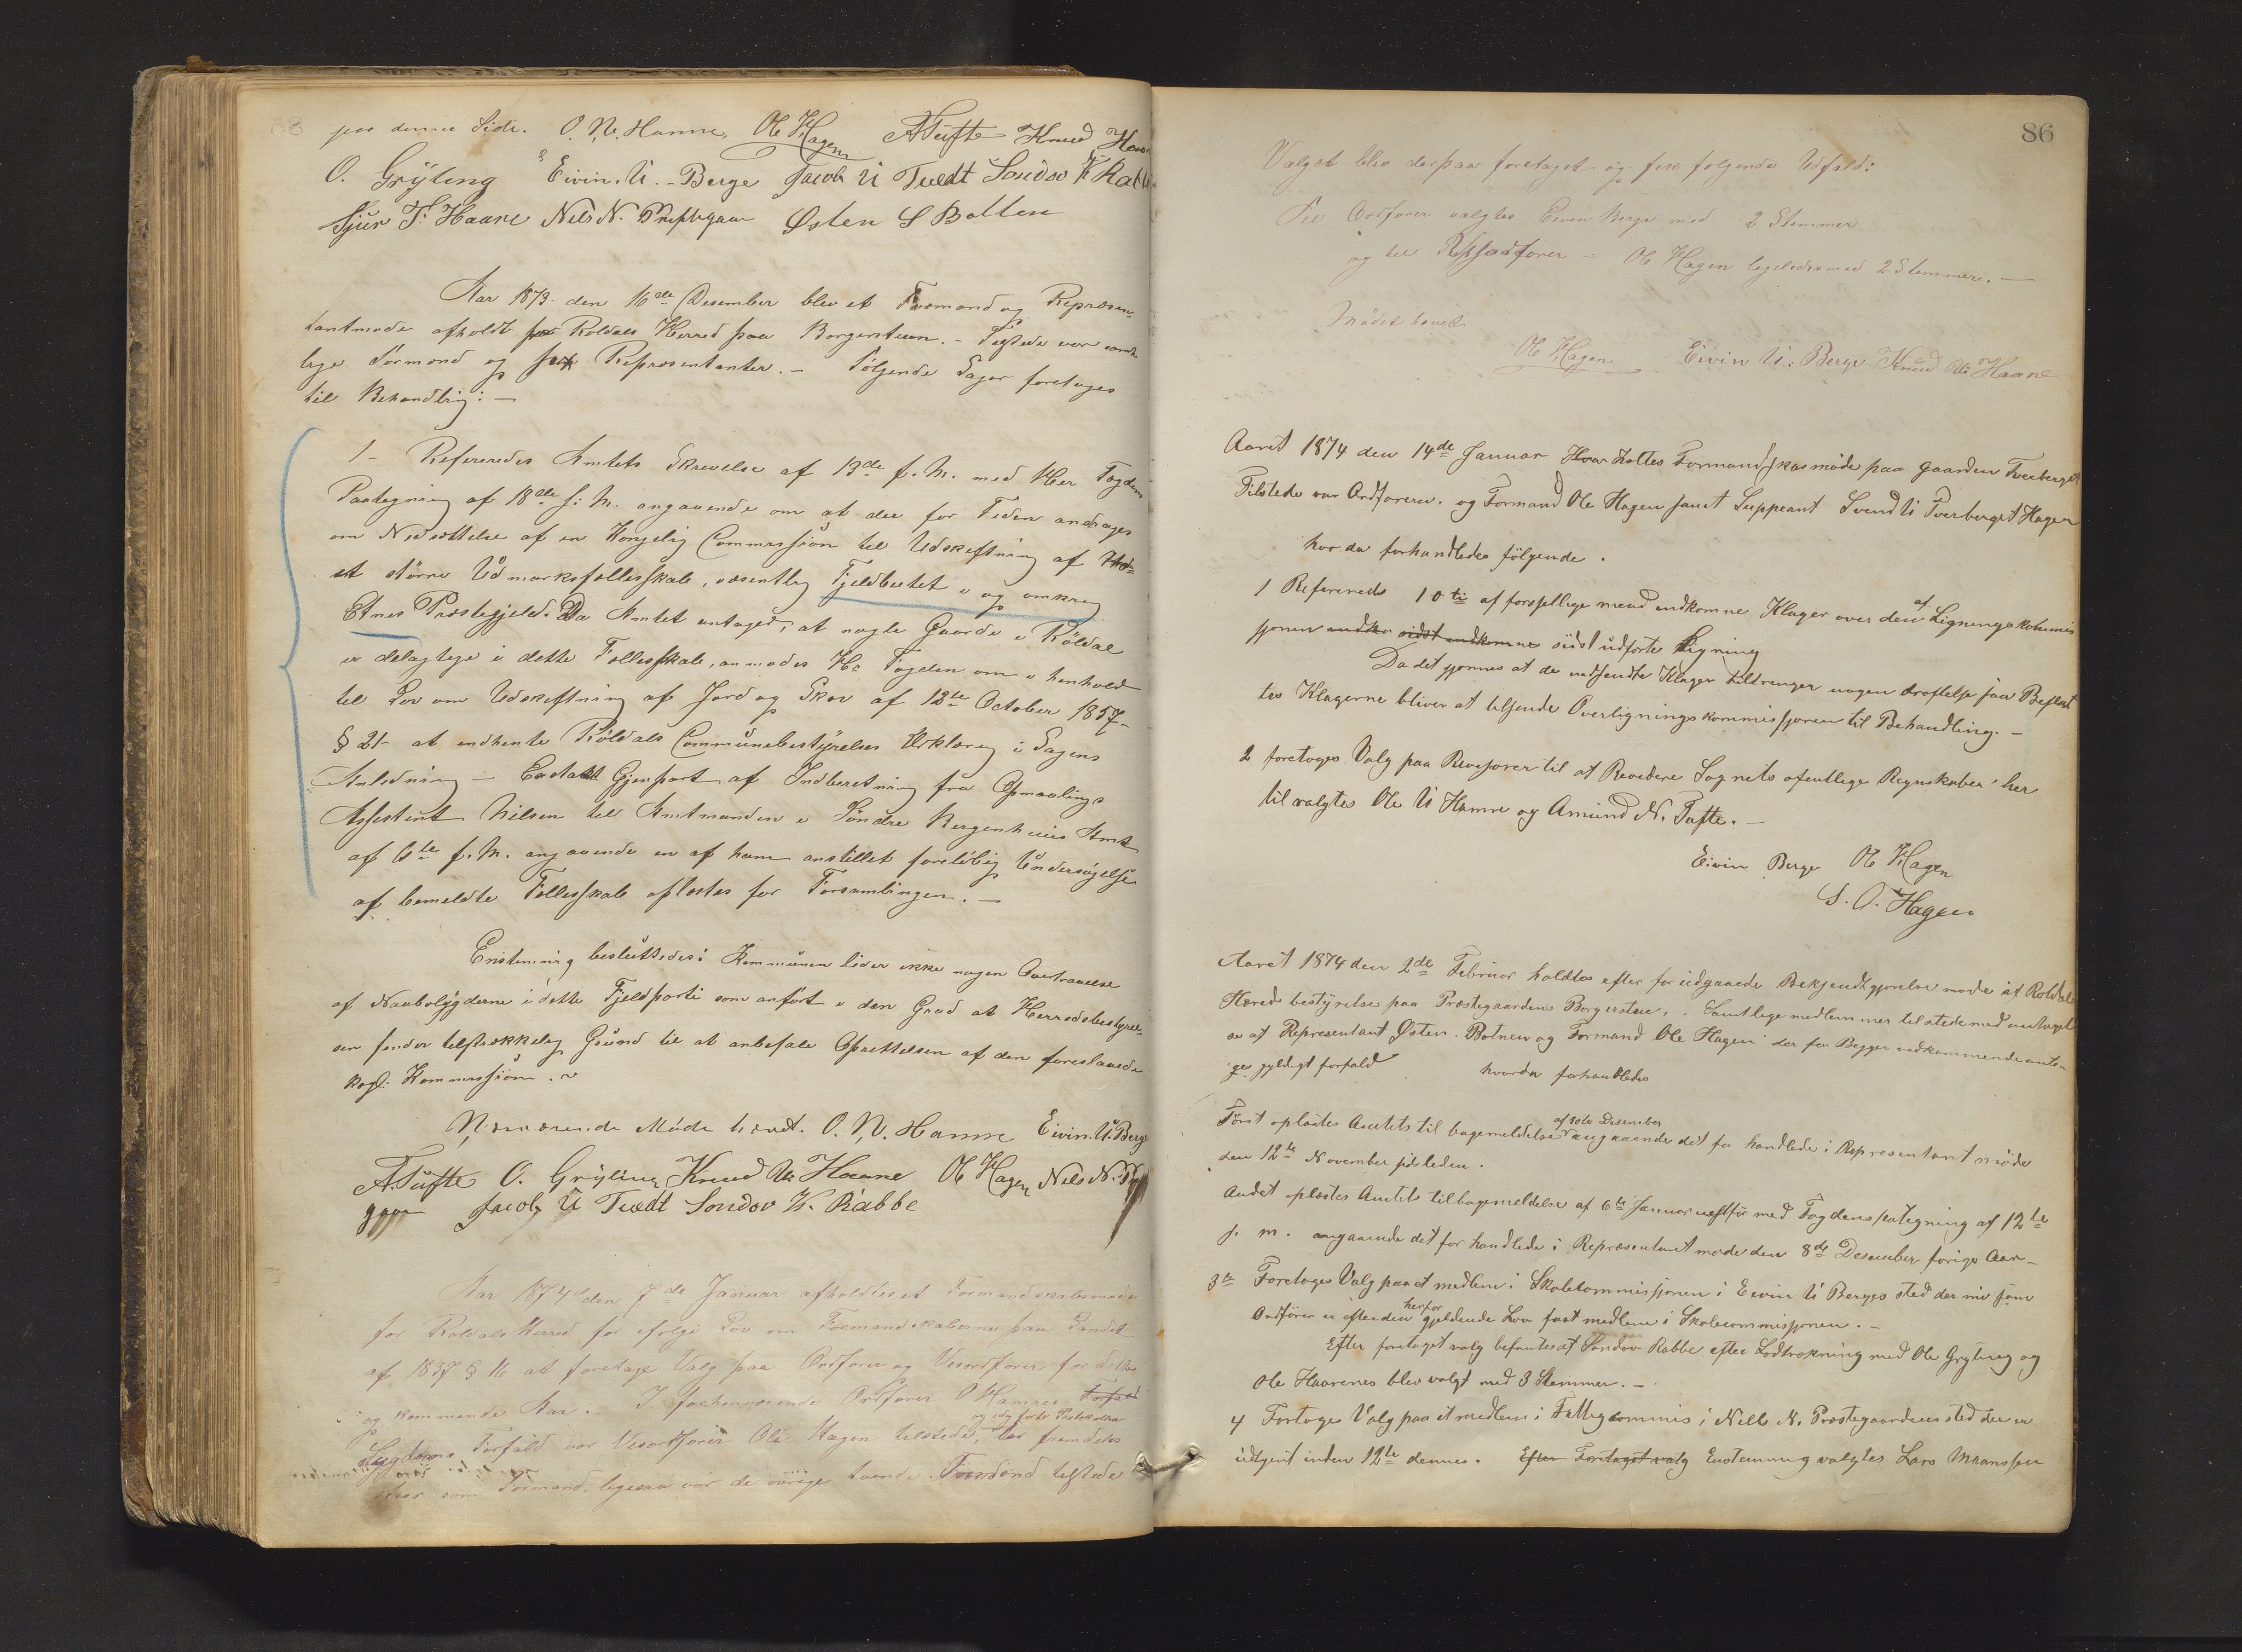 paa denne Side. O. N. Hamre, Ole Hagen A Tufte Knud Haare
O. Gryting Eivin. U. Berge Jacob U Tvedt Sondov K Rabbe
Sjur T. Haare Nels N. Prestegaar Østen S Botten
Aar 1873 den 16de Desember blev et Formand og Repræsen-
tantmøde afholdt for Røldals Herred paa Borgerstuen. – Tilstede var samt-
lige Formænd og sex Repræsentanter. – Følgende Sager foretoges
til Behandling: –
1 – Refereredes Amtets Skrivelse af 13de f. M. med Herr Fogdens
Paategning af 18de s: M. angaaende om at der for Tiden andrages
om Nedsættelse af en Kongelig Commission til Udskiftning af
et større Udmarksfællesskab, væsentlig Fjeldbeitet i og omkring
Etnes Præstegjeld. Da Amtet antager, at nogle Gaarde i Røldal
er delagtige i dette Fællesskab, anmodes Hr Fogden om i henhold
til Lov om Udskiftning af Jord og Skov af 12te October 1857 –
§ 21 – at indhente Røldals Communebestyrelses Erklæring i Sagens
Anledning – Gjenpart af Indberetning fra Opmaalings
Assestent Nilsen til Amtmanden i Søndre Bergenhuus Amt
af 6te f. M. angaaende en af ham anstillet foreløbig Undersøgelse
af bemeldte Fællesskab oplæstes for Forsamlingen. –
Enstemmig besluttedes: Kommunen lider ikke nogen Overtrædelse
af Nabobygderne i dette Fjeldparti som anført i den Grad at Herredsbestyrel-
sen finder tilstrækkelig Grund til at anbefale Oprettelsen af den foreslaaede
kgl: Kommission.
Nærværende Møde hævet. O. N. Hamre Eivin. U. Berge
A. Tufte O. Gryting Knud Haare Ole Hagen Nels N. Pre
gaar Jacob U Tvedt Sondov K. Rabbe
Aar 1874 den 7de Januar afholdtes et Formandskabsmøde
for Røldals Herred for ifølge Lov om Formandskaberne paa Landet
af 1837 § 16 at foretage Valg paa Ordfører og Viceordfører for dette
og kommende Aar. I forhenværende Ordfører O Hamres Forfald
og ... førte Protokollen
Sygdoms Forfald var Viceordfører Ole Hagen tilstede, der fremdeles
staar som Formand. ligesaa var de øvrige tvende Formænd tilstede
86
Valget blev derpaa foretaget og fik følgende Udfald:
Til Ordfører valgtes Eivin Berge med 2 Stemmer
og til Viceordfører – Ole Hagen ligeledes med 2 Stemmer. –
Mødet hævet
Ole Hagen Eivin U. Berge Knud Haare
Aaret 1874 den 14de Januar holttes Formandskasmøde paa gaarden Tverberget
Tilstede var Ordføreren. og Formand Ole Hagen samt Suppeant Svend Tverberget Hagen
hvor da forhandledes følgende.
1 Refereredes 10 ti af forskjellige mænd indkomne Klager over den af Ligningskommis
sjonen indko sidst indkomne sidst udførte Ligning
Da det synnes at de indsendte Klager tiltrenger nogen drøftelse saa Beslut
tes Klagerne bliver at tilsende Overligningskommissjonen til Behandling. –
2 foretoges Valg paa Revisorer til at Revidere Sognets ofentlige Regnskaber her
til valgtes Ole N Hamre og Amund N. Tufte. –
Eivin Berge Ole Hagen
S. O. Hagen
Aaret 1874 den 2de Februar holdtes efter forudgaaede Bekjendtgjørelse møde af Røldals
Hereds bestyrelse paa Præstegaardens Borgerstue. – Samtlige medlemmer tilstede med undtagel
se af Repræsentant Østen Botnen og Formand Ole Hagen. der for Begges vedkommende anto-
ges gyldigt forfald hvorda forhandledes
Først oplæstes Amtets tilbagemeldelse af Desember angaaende det for handlede i Representantmøde
den 12te November sidsleden.
Andet oplæstes Amtets tilbagemeldelse af 6te Januar med Fogdens paategning af 12te
s. m. angaaende det for handlede i Repræsentantmøde den 8de Desember forige Aar –
3die Foretoges Valg paa et medlem i Skolekommissjonen i Eivin U Berges sted der nu som
Ordfører er efter den herfor gjeldende Lov fast medlem i Skolecommissjonen. –
Efter foretaget valg befantes at Sondov Rabbe efter Lodtrækning med Ole Gryting og
Ole Haarenes blev valgt med 3 Stemmer. –
4 Fortoges Valg paa et medlem i Fattigcommis i Nills N. Præstegaardens sted der er
udgaat inden 12te dennes. Efter Foretaget valg Enstemmig valgtes Lars Maanssen